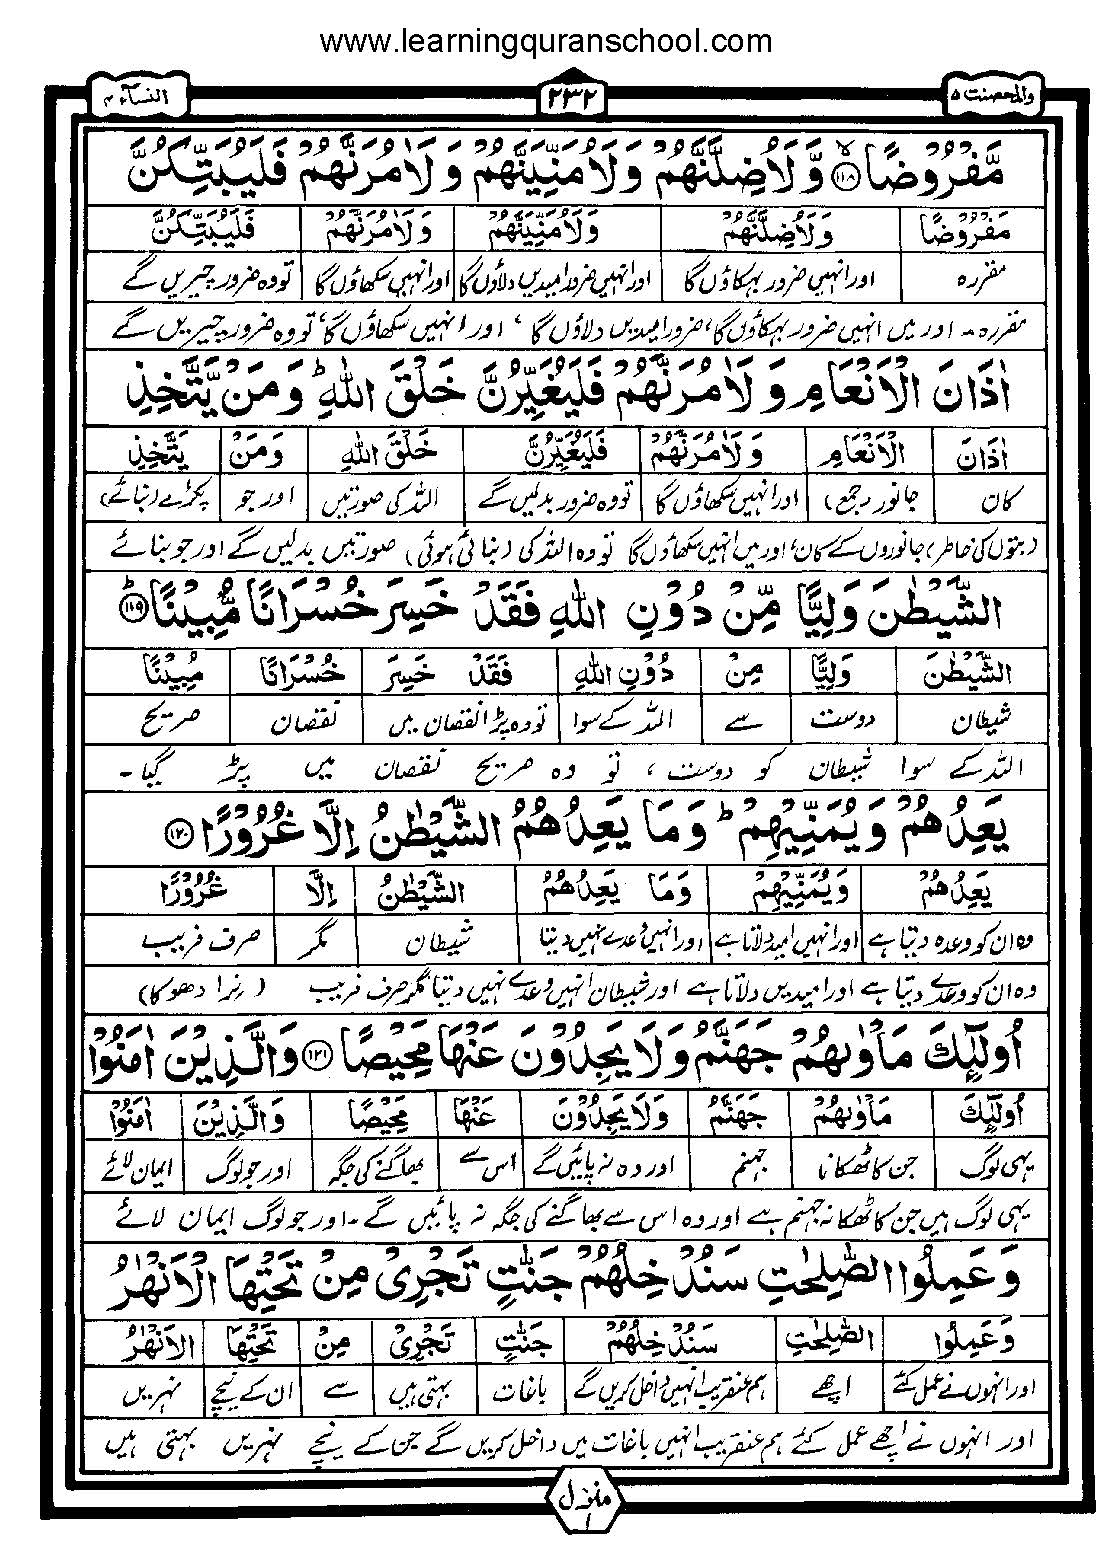 www.learningquranschool.com
والمحصنت ۵ ۲۳۲ النسآء ۴
مَّفْرُوْضًا ﴿۱۱۸﴾ۙ وَّلَاُضِلَّنَّهُمْ وَلَاُمَنِّيَنَّهُمْ وَلَاٰمُرَنَّهُمْ فَلَيُبَتِّكُنَّ
مَفْرُوْضًا وَلَاُضِلَّنَّهُمْ وَلَاُمَنِّيَنَّهُمْ وَلَاٰمُرَنَّهُمْ فَلَيُبَتِّكُنَّ
مقررہ اور انہیں ضرور بہکاؤں گا اور انہیں ضرور امیدیں دلاؤں گا اور انہیں سکھاؤں گا تو وہ ضرور چیریں گے
مقررہ۔ اور میں انہیں ضرور بہکاؤں گا، ضرور امیدیں دلاؤں گا، اور انہیں سکھاؤں گا، تو وہ ضرور چیریں گے
اٰذَانَ الْاَنْعَامِ وَلَاٰمُرَنَّهُمْ فَلَيُغَيِّرُنَّ خَلْقَ اللّٰهِ ؕ وَمَنْ يَّتَّخِذِ
اٰذَانَ الْاَنْعَامِ وَلَاٰمُرَنَّهُمْ فَلَيُغَيِّرُنَّ خَلْقَ اللّٰهِ وَمَنْ يَتَّخِذِ
کان جانور (جمع) اور انہیں سکھاؤں گا تو وہ ضرور بدلیں گے اللہ کی صورتیں اور جو پکڑے (بنائے)
(بتوں کی خاطر) جانوروں کے کان، اور میں انہیں سکھاؤں گا تو وہ اللہ کی (بنائی ہوئی) صورتیں بدلیں گے اور جو بنائے
الشَّيْطٰنَ وَلِيًّا مِّنْ دُوْنِ اللّٰهِ فَقَدْ خَسِرَ خُسْرَانًا مُّبِيْنًا ﴿۱۱۹﴾ؕ
الشَّيْطٰنَ وَلِيًّا مِنْ دُوْنِ اللّٰهِ فَقَدْ خَسِرَ خُسْرَانًا مُبِيْنًا
شیطان دوست سے اللہ کے سوا تو وہ پڑا نقصان میں نقصان صریح
اللہ کے سوا شیطان کو دوست، تو وہ صریح نقصان میں پڑ گیا۔
يَعِدُهُمْ وَيُمَنِّيْهِمْ ؕ وَمَا يَعِدُهُمُ الشَّيْطٰنُ اِلَّا غُرُوْرًا ﴿۱۲۰﴾
يَعِدُهُمْ وَيُمَنِّيْهِمْ وَمَا يَعِدُهُمُ الشَّيْطٰنُ اِلَّا غُرُوْرًا
وہ ان کو وعدہ دیتا ہے اور انہیں امید دلاتا ہے اور انہیں وعدے نہیں دیتا شیطان مگر صرف فریب
وہ ان کو وعدے دیتا ہے اور امیدیں دلاتا ہے اور شیطان انہیں وعدے نہیں دیتا مگر صرف فریب (نرا دھوکا)
اُولٰٓئِكَ مَاْوٰىهُمْ جَهَنَّمُ وَلَا يَجِدُوْنَ عَنْهَا مَحِيْصًا ﴿۱۲۱﴾ وَالَّذِيْنَ اٰمَنُوْا
اُولٰٓئِكَ مَاْوٰىهُمْ جَهَنَّمُ وَلَا يَجِدُوْنَ عَنْهَا مَحِيْصًا وَالَّذِيْنَ اٰمَنُوْا
یہی لوگ جن کا ٹھکانا جہنم اور وہ نہ پائیں گے اس سے بھاگنے کی جگہ اور جو لوگ ایمان لائے
یہی لوگ ہیں جن کا ٹھکانہ جہنم ہے اور وہ اس سے بھاگنے کی جگہ نہ پائیں گے۔ اور جو لوگ ایمان لائے
وَعَمِلُوا الصّٰلِحٰتِ سَنُدْخِلُهُمْ جَنّٰتٍ تَجْرِيْ مِنْ تَحْتِهَا الْاَنْهٰرُ
وَعَمِلُوا الصّٰلِحٰتِ سَنُدْخِلُهُمْ جَنّٰتٍ تَجْرِيْ مِنْ تَحْتِهَا الْاَنْهٰرُ
اور انہوں نے عمل کئے اچھے ہم عنقریب انہیں داخل کریں گے باغات بہتی ہیں سے ان کے نیچے نہریں
اور انہوں نے اچھے عمل کئے ہم عنقریب انہیں باغات میں داخل کریں گے جن کے نیچے نہریں بہتی ہیں
منزل ۱